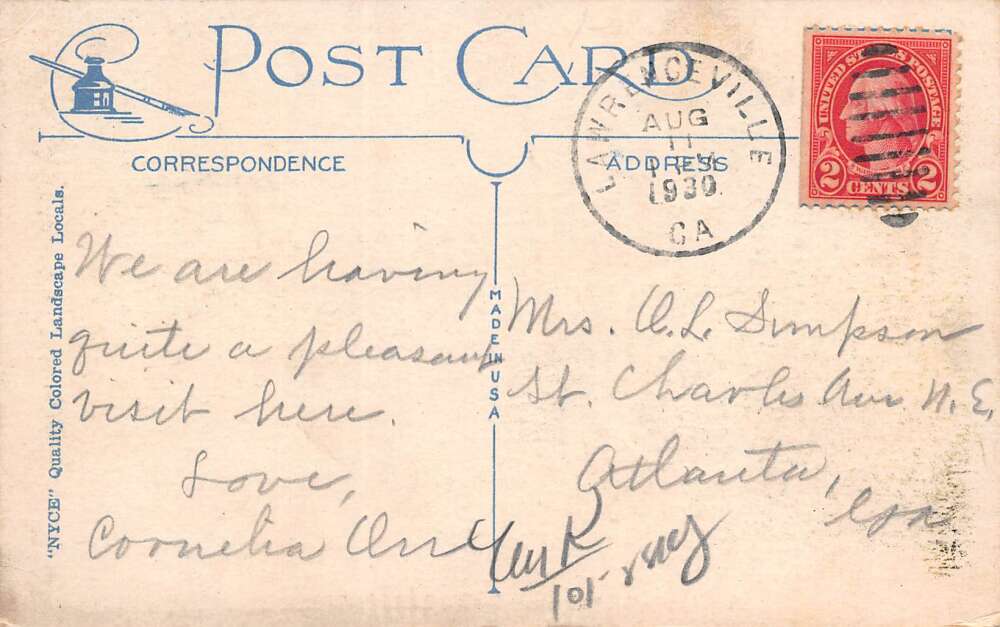 POST CARD
CORRESPONDENCE
ADDRESS
LAWRENCEVILLE
AUG
11
1930
GA
UNITED STATES POSTAGE
2 CENTS 2
"NYCE" Quality Colored Landscape Locals.
MADE IN USA
We are having
quite a pleasant
visit here.
Love,
Cornelia Orr
Mrs. O.L. Simpson
St. Charles Ave N.E.
Atlanta,
Ga
101